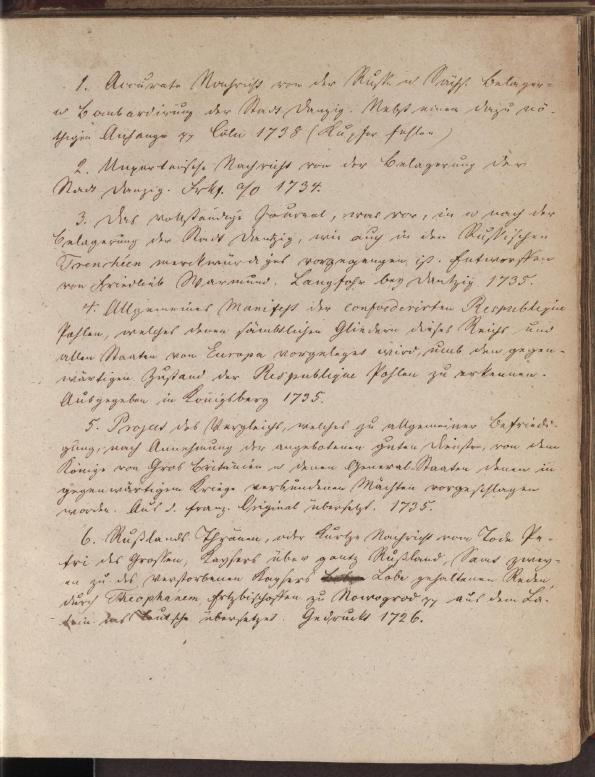 1. Accurate Nachricht von der Russ. u Sächs. Belager-
u Bombardirung der Stadt Danzig. Nebst einen dazu nö-
thigen Anhange pp Cöln 1738 (Kupfer fehlen)
2. Unparteiische Nachricht von der Belagerung der
Stadt Danzig. Frkf. a/O 1734.
3. Das vollständige Journal, was vor, in u nach der
Belagerung der Stadt Dantzig, wie auch in den Russischen
Trencheen merckwürdiges vorgegangen ist. Entworffen
von Friedlieb Warmund. Langfohr bey Dantzig 1735.
4. Allgemeines Manifest der confoederirten Respublique
Pohlen, welches denen sämbtlichen Gliedern dieses Reichs und
allen Staaten von Europa vorgeleget wird, umb den gegen-
wärtigen Zustand der Respublique Pohlen zu erkennen.
Ausgegeben in Königsberg 1735.
5. Project des Vergleichs, welches zu allgemeiner Befriedi-
gung, nach Annehmung der angebotenen guten Dienste, von dem
Könige von Gros Britanien u denen General-Staaten denen in
gegenwärtigem Kriege verbundenen Mächten vorgeschlagen
worden. Aus d. franz. Original übersetzt. 1735.
6. Rußlands Thränen, oder kurtze Nachricht vom Tode Pe-
tri des Grossen, Kaysers über gantz Rußland, Samt zwey-
en zu des verstorbenen Kaysers Lobe gehaltenen Reden,
durch Theophanem Ertzbischoffen zu Nowogrod pp aus dem La-
tein ins Teutsche übersetzet. Gedruckt 1726.